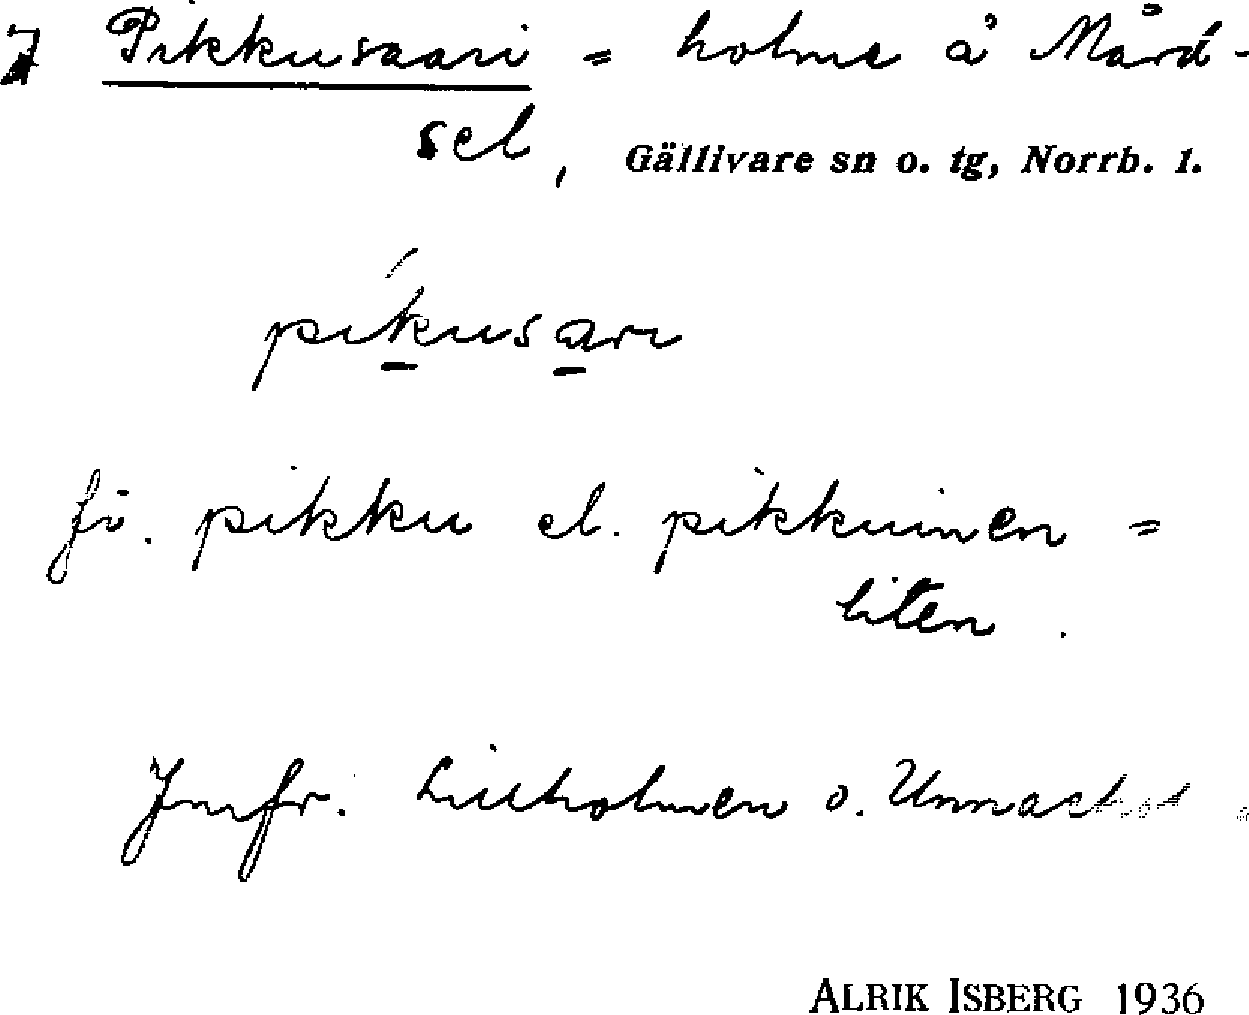 7 Pikkusaari = holme å Mård-
sel, Gällivare sn o. tg, Norrb. 1.
píkusari
fi. pikku el. pikkuinen =
liten.
Jmfr. Lillholmen o.
ALRIK ISBERG 1936